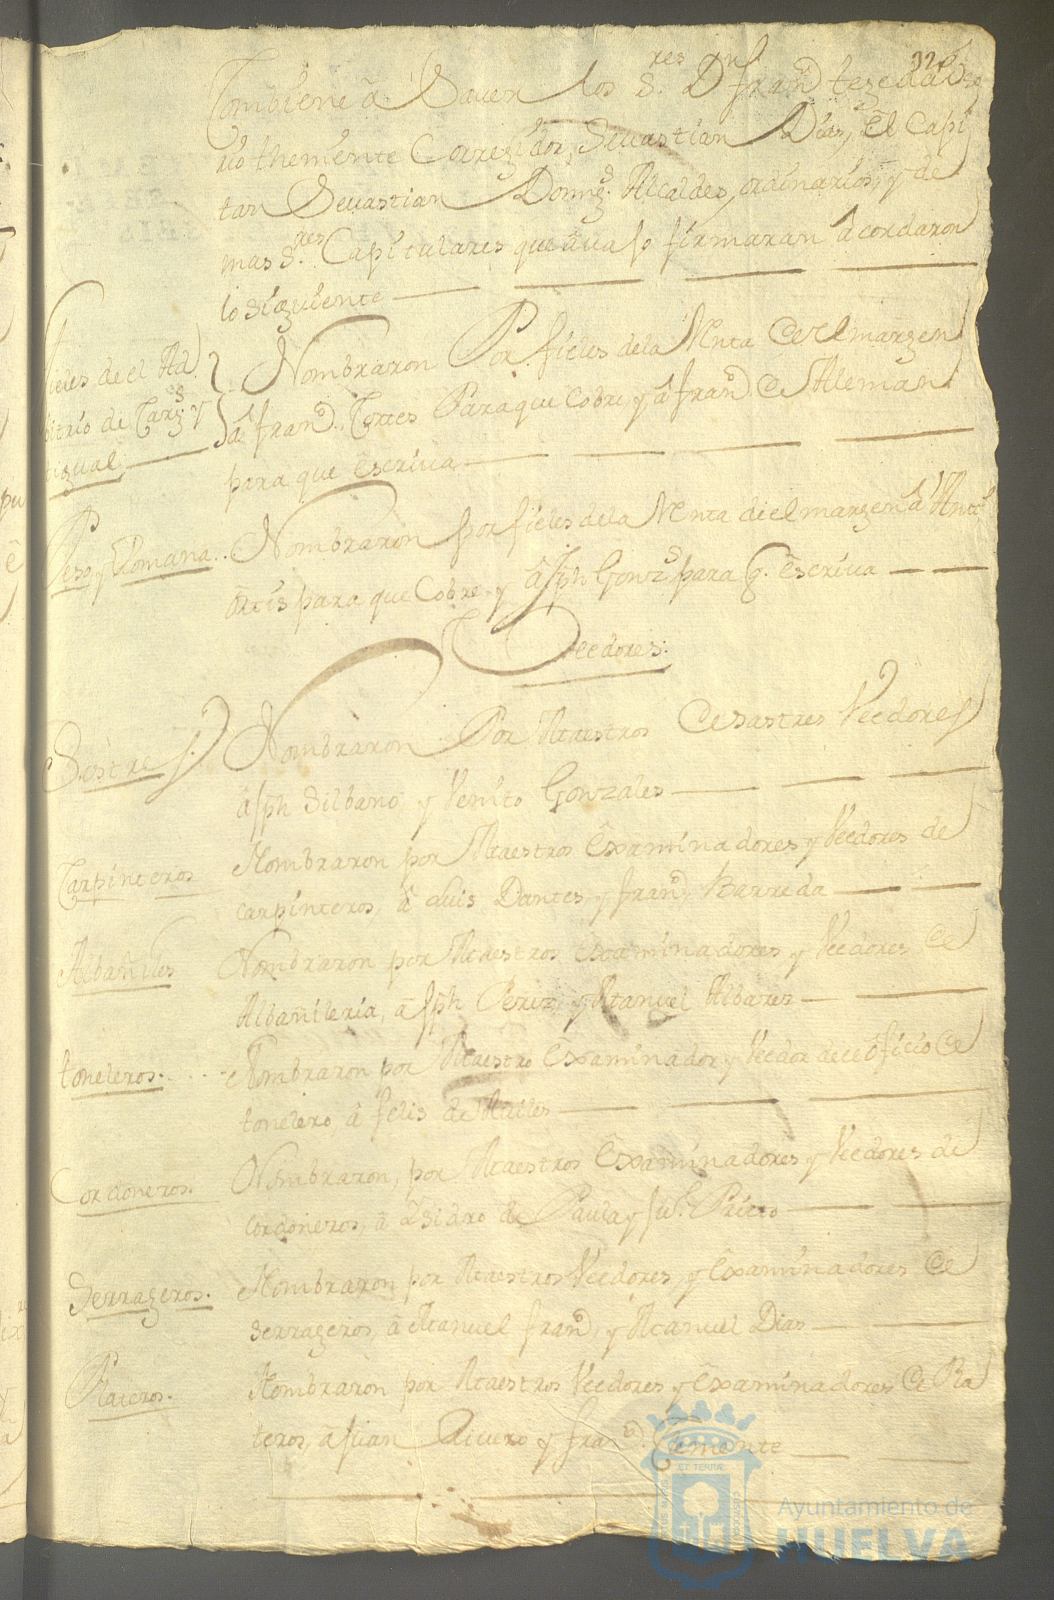 Combiene a Sauer los S.res Dn fran.co
uio theniente Correxidor, Seuastian Dias, el Capi
tan Seuastian Doming.s Alcaldes ordinarios, y de
mas S.res Capitulares que auajo firmaran acordaron
lo Siguiente
fieles de el Ad
bitrio de Carg.s y
Nombraron Por fieles dela Renta de el margen
a fran.co Torres Para que Cobre y a fran.co de Aleman
para que escriua
Peso y Romana..
Nombraron por fieles dela Renta de el margen a Ant.o
para que Cobre y a Jph Gonz.s para q. escriua
Veedores:
Sastres
Nombraron Por Maestros de sastres Veedores
a Jph Silbano y Venito Gonzales
Carpinteros
Nombraron por Maestros Examinadores y Veedores de
carpinteros, a Luis Dantes, y fran.co Barreda
Albañiles
Nombraron por Maestros examinadores y Veedores de
Albañileria, a Jph Perez y Manuel Albarez
toneleros.....
Nombraron por Maestro Examinador y Veedor de el oficio de
tonelero, a felis de
Cordoneros.
Nombraron, por Maestros Examinadores y Veedores de
cordoneros, a Ysidro de Paula y Ju.o Prieto
Serrageros.
Nombraron por Maestros Veedores, y Examinadores de
serrageros, a Manuel fran.co, y Manuel Dias
Plateros.
Nombraron por Maestros Veedores y Examinadores de Pla
teros, a Juan Riuero y fran.co
Ayuntamiento de
HUELVA